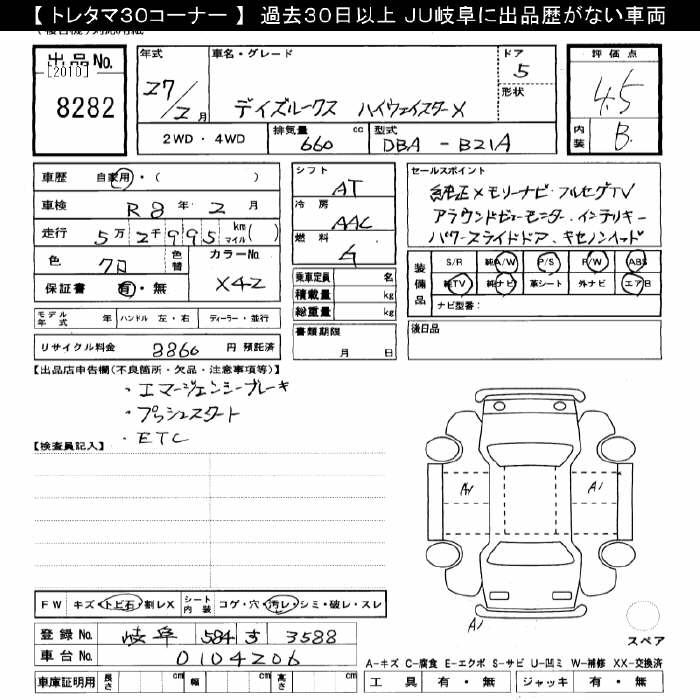 【 トレタマ30コーナー 】 過去30日以上 JU岐阜に出品歴がない車両
出品No.
[2010]
8282
年式
27/2月
車名・グレード
デイズルークス ハイウェイスターX
ドア
5
形状
評価点
4.5
内装
B
2WD・4WD
排気量
660 cc
型式
DBA - B21A
車歴 自家用・( )
車検 R8年 2月
走行 5万2千995 km マイル( )
色 クロ 色替
カラーNo. X42
保証書 有・無
シフト
AT
冷房
AAC
燃料
G
乗車定員 名
積載量 kg
総重量 kg
書類期限
月 日
セールスポイント
純正メモリーナビ・フルセグTV
アラウンドビューモニター・インテリキー
パワースライドドア、キセノンヘッド
装備品
S/R 純A/W P/S P/W ABS
純TV 純ナビ 革シート 外ナビ エアB
ナビ型番:
後日品
モデル年式 年 ハンドル 左・右 ディーラー・並行
リサイクル料金 8860 円 預託済
【出品店申告欄(不良箇所・欠品・注意事項等)】
・エマージェンシーブレーキ
・プッシュスタート
・ETC
【検査員記入】
A1 A1
A1
スペア
FW キズ・トビ石・割レX
シート内装 コゲ・穴・汚レ・シミ・破レ・スレ
登録No. 岐阜 584 す 3588
車台No. 0104206
車庫証明用 長さ cm 幅 cm 高さ cm
A-キズ C-腐食 E-エクボ S-サビ U-凹ミ W-補修 XX-交換済
工具 有・無 ジャッキ 有・無